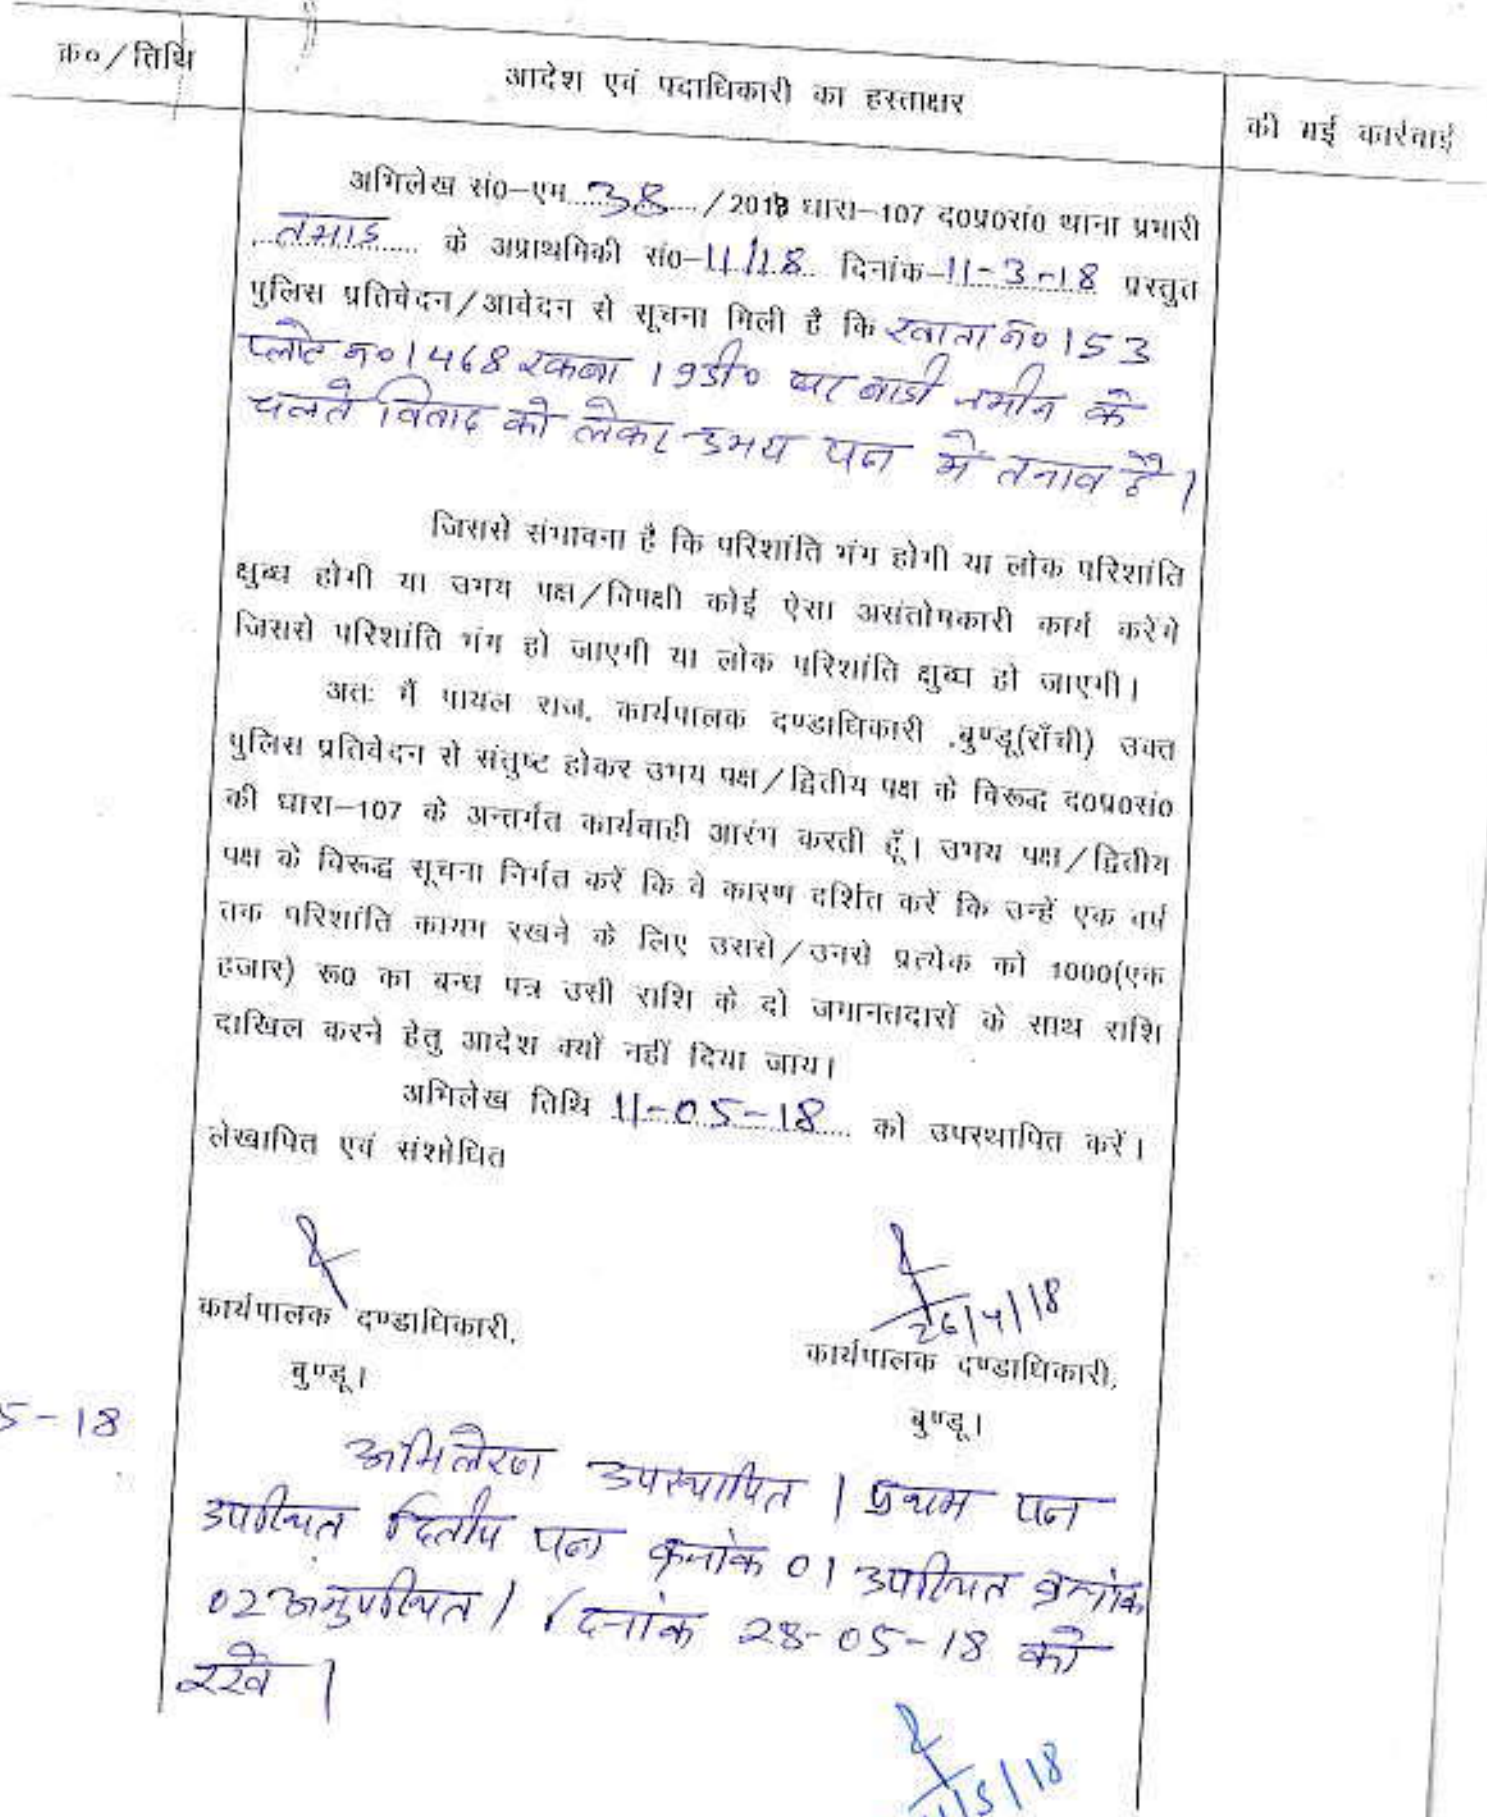 क्र०/तिथि
आदेश एवं पदाधिकारी का हस्ताक्षर
की गई कार्रवाई
अभिलेख सं0-एम 38 /2018 धारा-107 द0प्र0सं0 थाना प्रभारी
तमाड़ के अप्राथमिकी सं0-11/18 दिनांक-11-3-18 प्रस्तुत
पुलिस प्रतिवेदन/आवेदन से सूचना मिली है कि खाता नं० 153
प्लोट नं० 1468 रकबा 19डी० पर बाड़ी जमीन के
चलते विवाद को लेकर उभय पक्ष में तनाव है।
जिससे संभावना है कि परिशांति भंग होगी या लोक परिशांति
क्षुब्ध होगी या उभय पक्ष/विपक्षी कोई ऐसा असंतोषकारी कार्य करेंगे
जिससे परिशांति भंग हो जाएगी या लोक परिशांति क्षुब्ध हो जाएगी।
अतः मैं पायल राज, कार्यपालक दण्डाधिकारी ,बुण्डू(राँची) उक्त
पुलिस प्रतिवेदन से संतुष्ट होकर उभय पक्ष/द्वितीय पक्ष के विरूद्ध द0प्र0सं0
की धारा-107 के अन्तर्गत कार्यवाही आरंभ करती हूँ। उभय पक्ष/द्वितीय
पक्ष के विरूद्ध सूचना निर्गत करें कि वे कारण दर्शित करें कि उन्हें एक वर्ष
तक परिशांति कायम रखने के लिए उससे/उनसे प्रत्येक को 1000(एक
हजार) रू0 का बन्ध पत्र उसी राशि के दो जमानतदारों के साथ राशि
दाखिल करने हेतु आदेश क्यों नहीं दिया जाय।
अभिलेख तिथि 11-05-18 को उपस्थापित करें।
लेखापित एवं संशोधित
26/4/18
कार्यपालक दण्डाधिकारी,
बुण्डू।
कार्यपालक दण्डाधिकारी,
बुण्डू।
5-18
अभिलेख उपस्थापित। प्रथम पक्ष
उपस्थित द्वितीय पक्ष क्रमांक 01 उपस्थित क्रमांक
02 अनुपस्थित। दिनांक 28-05-18 को
रखें।
/5/18